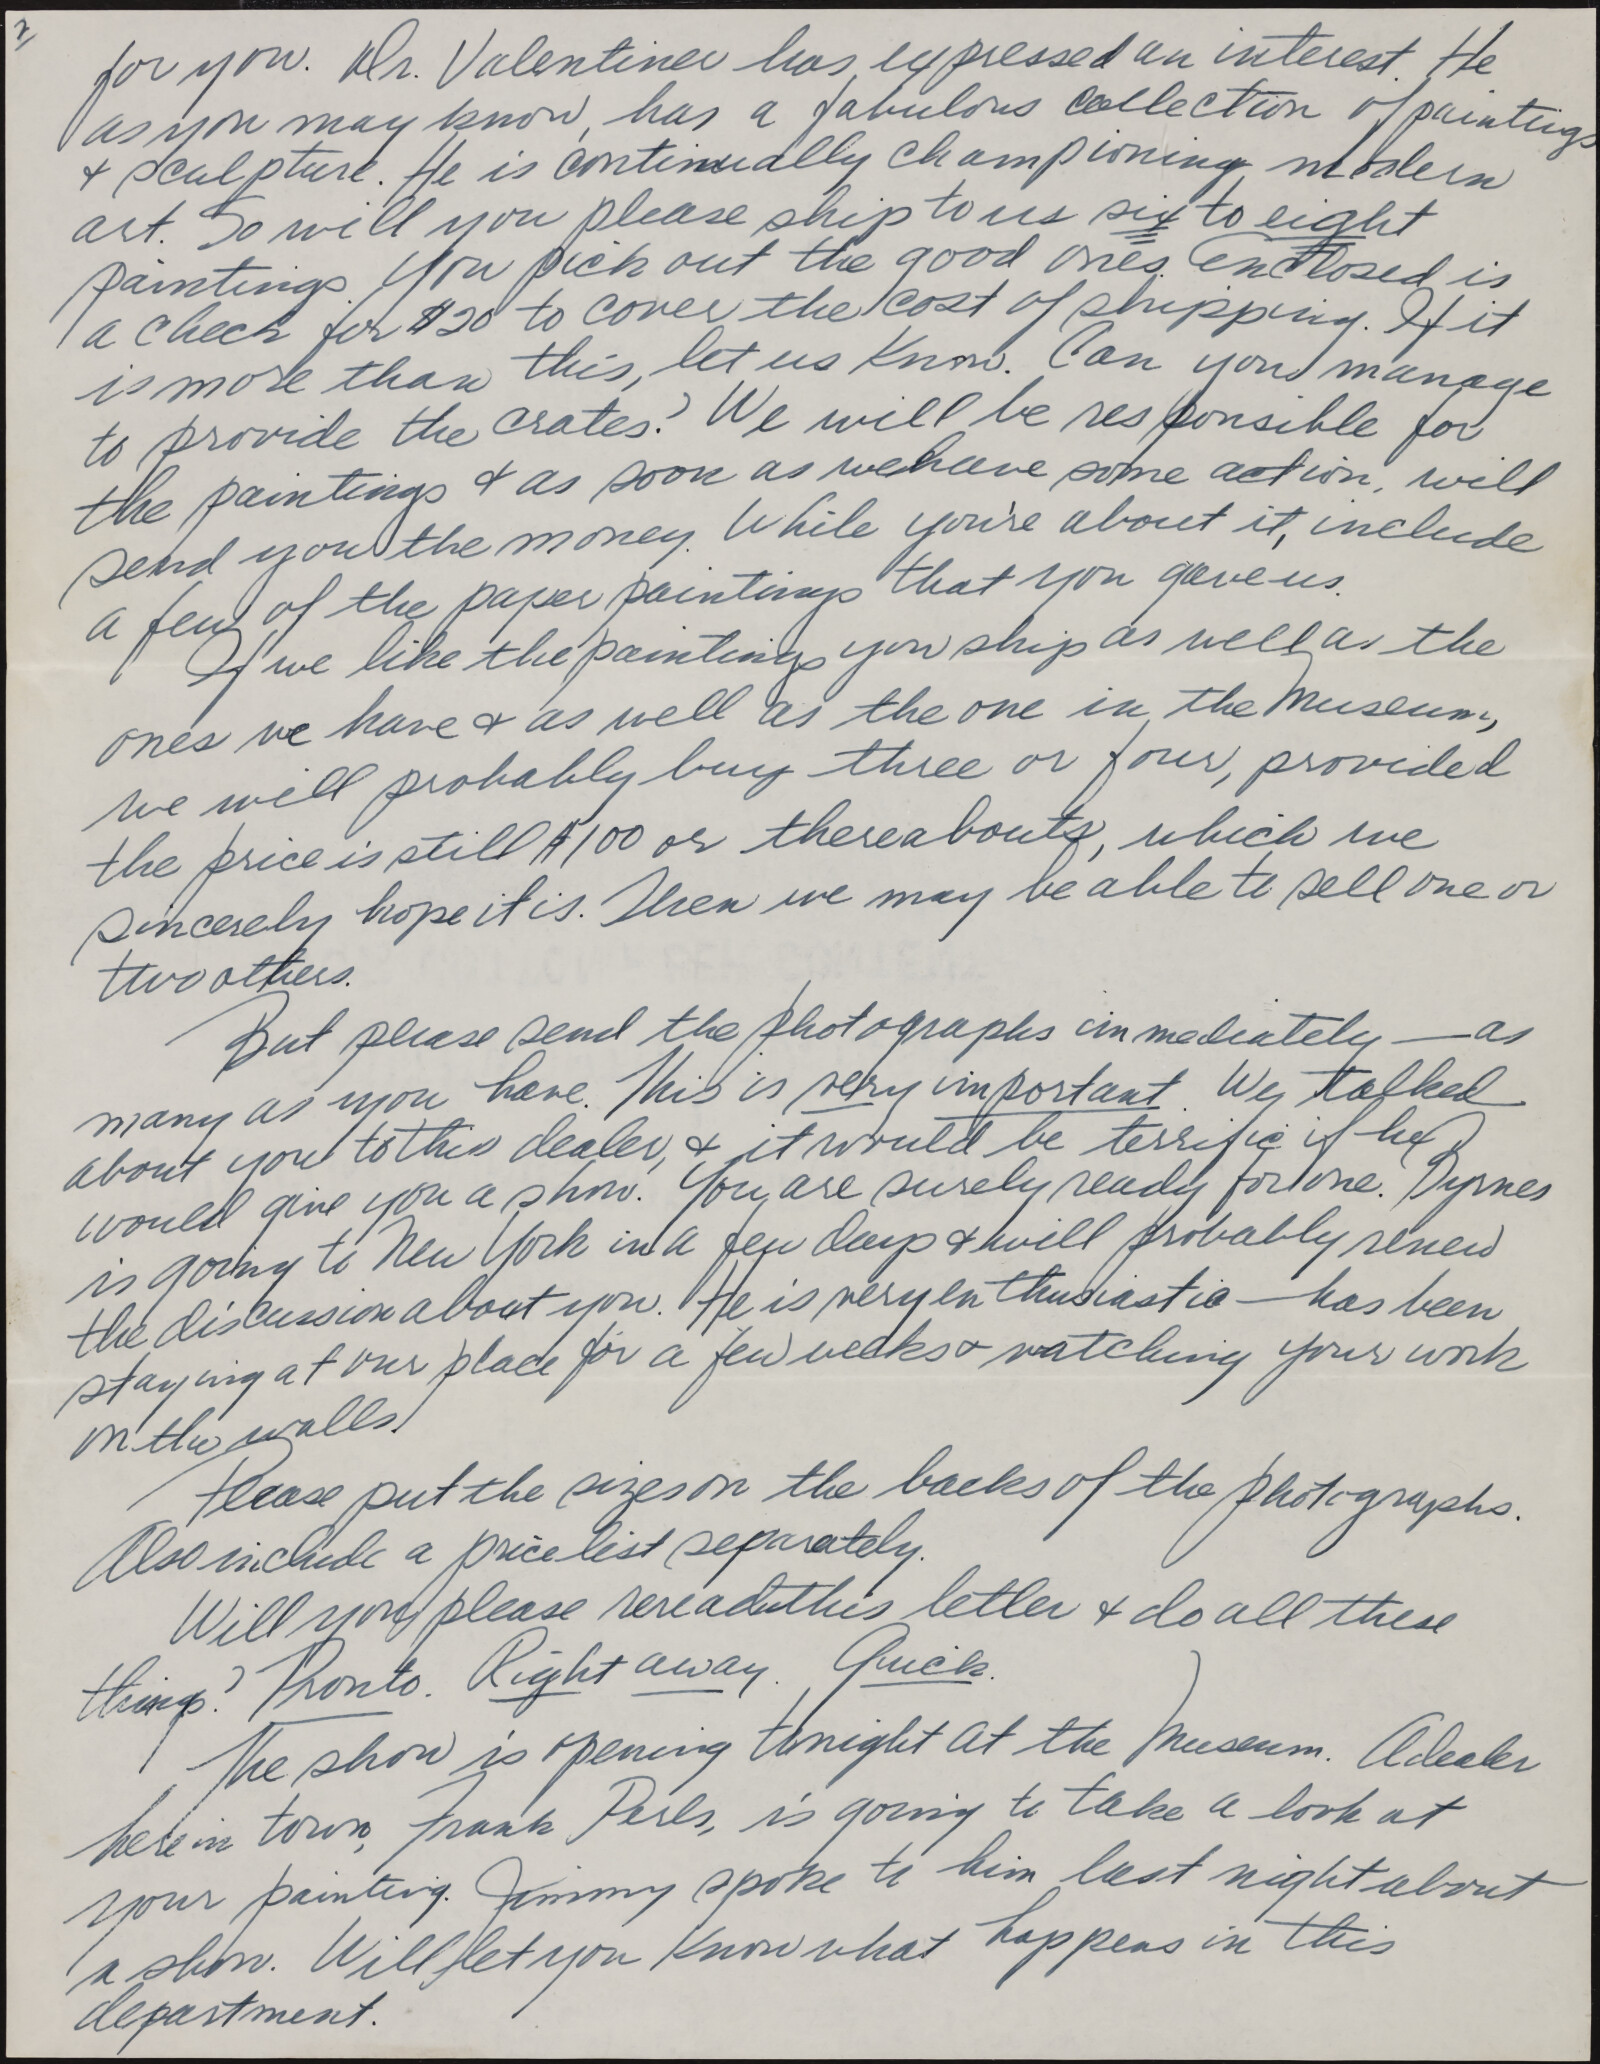 2/
for you. Dr. Valentiner has expressed an interest. He
as you may know, has a fabulous collection of paintings
& sculpture. He is continually championing modern
art. So will you please ship to us six to eight
paintings. You pick out the good ones. Enclosed is
a check for $20 to cover the cost of shipping. If it
is more than this, let us know. Can you manage
to provide the crates? We will be responsible for
the paintings & as soon as we have some action, will
send you the money. While you're about it, include
a few of the paper paintings that you gave us.
If we like the paintings you ship as well as the
ones we have & as well as the one in the Museum,
we will probably buy three or four, provided
the price is still $100 or thereabouts, which we
sincerely hope it is. Then we may be able to sell one or
two others.
But please send the photographs immediately — as
many as you have. This is very important. We talked
about you to this dealer, & it would be terrific if he
would give you a show. You are surely ready for one. Byrnes
is going to New York in a few days & will probably renew
the discussion about you. He is very enthusiastic — has been
staying at our place for a few weeks & watching your work
on the walls.
Please put the sizes on the backs of the photographs.
Also include a price list separately.
Will you please reread this letter & do all these
things? Pronto. Right away. Quick.
The show is opening tonight at the Museum. A dealer
here in town, Frank Perls, is going to take a look at
your painting. Jimmy spoke to him last night about
a show. Will let you know what happens in this
department.